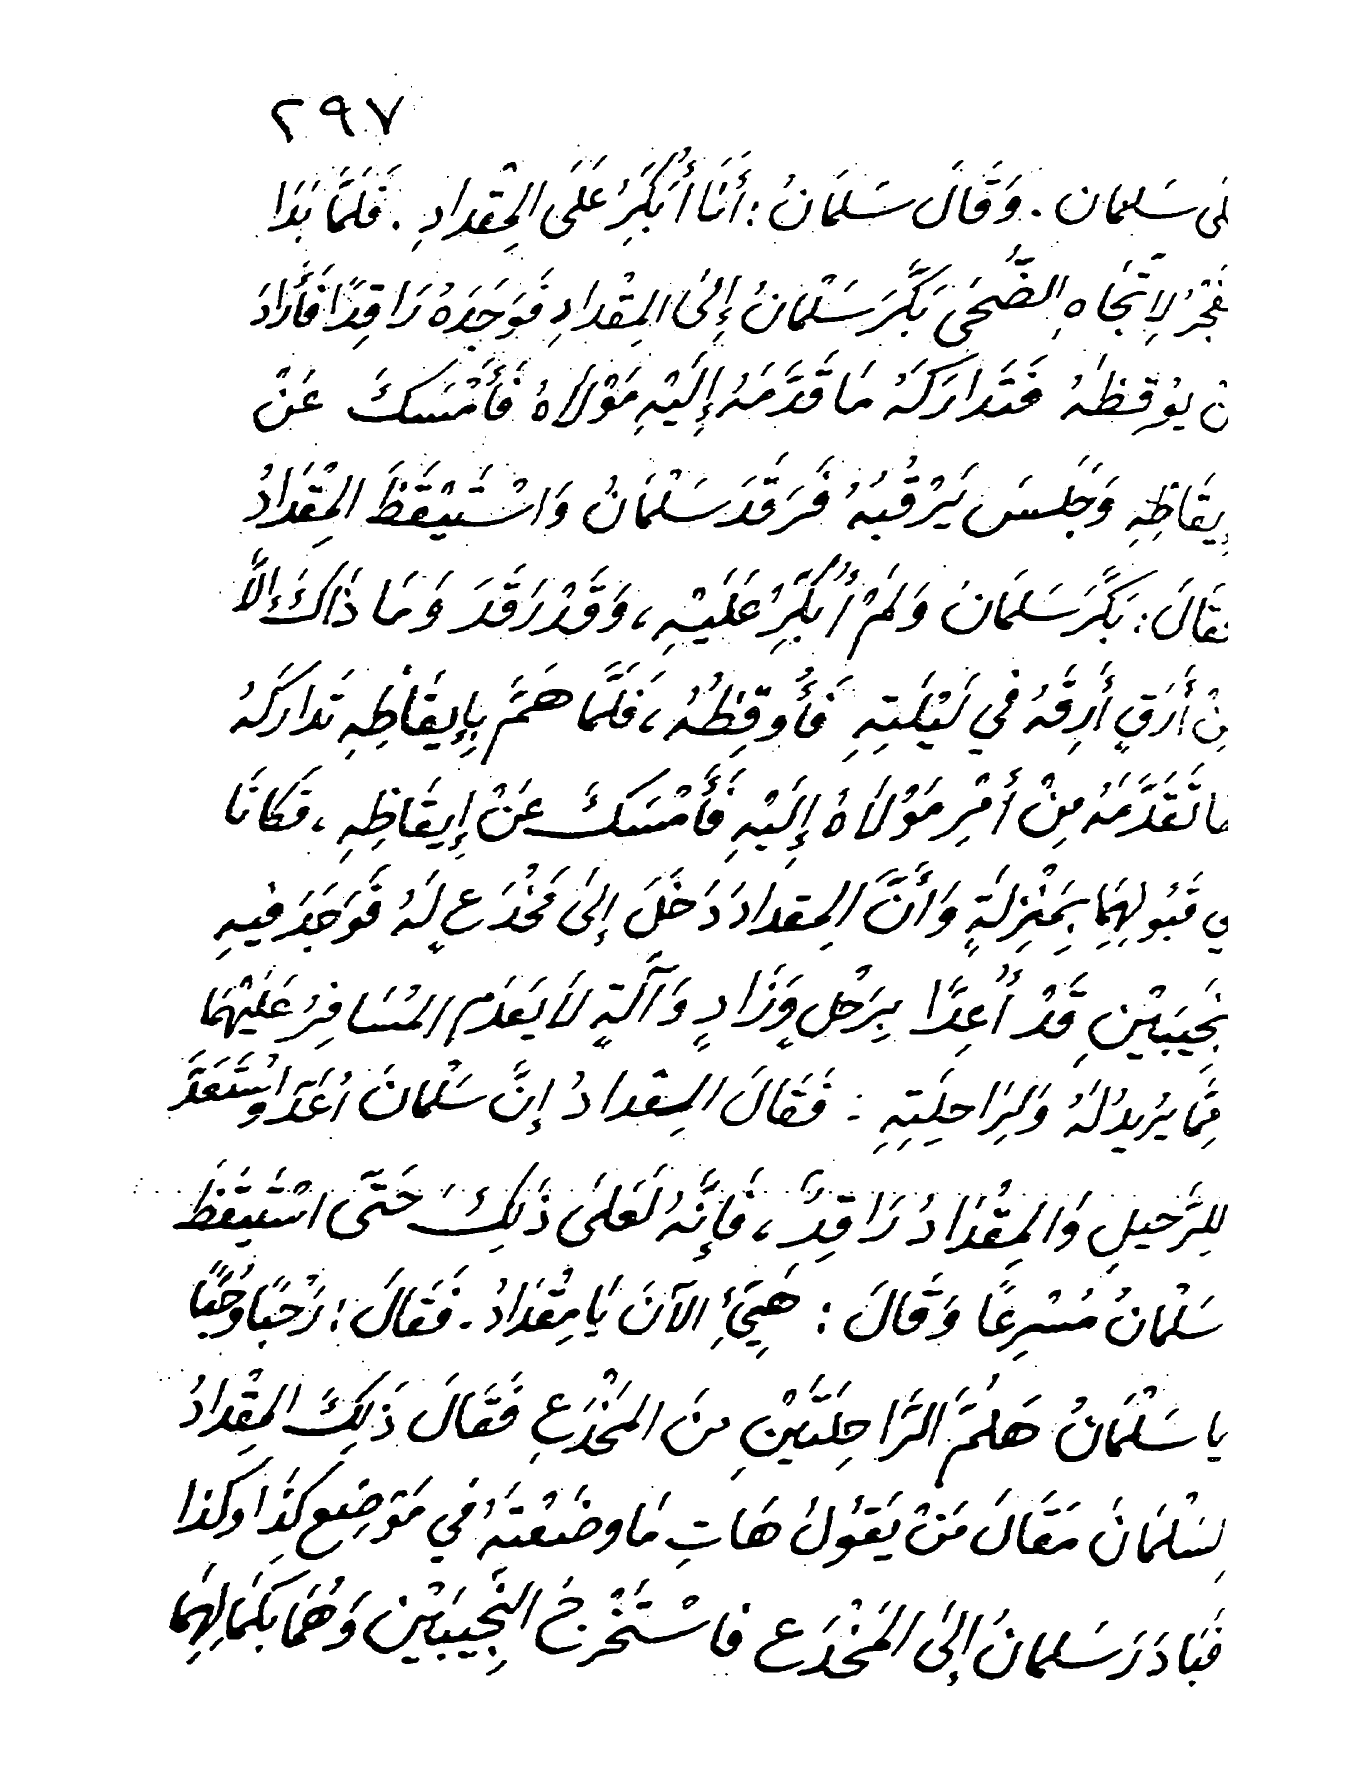 ٢٩٧
لى سَلمان . وَقَالَ سَلمَانُ : أَنَا أُبَكِّرُ عَلَى المِقْدَادِ . فَلَمَّا بَدَا
فَجْرُ لِاتِّجَاهِ الضُّحَى بَكَّرَ سَلْمَانُ إِلَى المِقْدَادِ فَوَجَدَهُ رَاقِدًا فَأَرَادَ
نْ يُوقِظَهُ فَتَدَارَكَهُ مَا قَدَّمَهُ إِلَيْهِ مَوْلَاهُ فَأَمْسَكَ عَنْ
إِيقَاظِهِ وَجَلَسَ يَرْقُبُهُ فَرَقَدَ سَلْمَانُ وَاسْتَيْقَظَ المِقْدَادُ
فقَالَ : بَكَّرَ سَلمَانُ وَلَمْ أُبَكِّرْ عَلَيْهِ ، وَقَدْ رَقَدَ وَمَا ذَاكَ إِلَّا
مِنْ أَرَقٍ أَرِقَهُ فِي لَيْلَتِهِ فَأُوقِظُهُ ، فَلَمَّا هَمَّ بِإِيقَاظِهِ تَدَارَكَهُ
مَا تَقَدَّمَهُ مِنْ أَمْرِ مَوْلَاهُ إِلَيْهِ فَأَمْسَكَ عَنْ إِيقَاظِهِ ، فَكَانَا
فِي قَبُولِهِمَا بِمَنْزِلَةٍ وَأَنَّ المِقداد دَخَلَ إِلَى مَخْدَعٍ لَهُ فَوَجَدَ فِيهِ
نَجِيبَيْنِ قَدْ أُعِدَّا بِرَحْلٍ وَزَادٍ وَآلَةٍ لَا يَعْدَمِ المُسَافِرُ عَلَيْهِمَا
مِمَّا يُرِيدُ لَهُ وَلِرَاحِلَتِهِ : فَقَالَ المِقْدَادُ إِنَّ سَلْمَانَ أَعَدَّ وَاسْتَعَدَّ
لِلرَّحِيلِ وَالمِقْدَادُ رَاقِدٌ ، فَإِنَّهُ لَعَلَى ذَلِكَ حَتَّى اسْتَيْقَظَ
سَلْمَانُ مُسْرِعًا وَقَالَ : هَيِّئِ الآنَ يَا مِقْدَادُ . فَقَالَ : رُحْبًا وَحُبًّا
يا سَلْمَانُ هَلُمَّ الرَّاحِلَتَيْنِ مِنَ المَخْدَعِ فَقَالَ ذَلِكَ المِقْدَادُ
لِسَلْمَانَ مَقَالَ مَنْ يَقُولُ هَاتِ مَا وَضَعْتَهُ فِي مَوْضِعِ كَذَا وَكَذَا
فَبَادَرَ سَلمانُ إِلَى المَخْدَعِ فَاسْتَخْرَجَ النَّجِيبَيْنِ وَهُمَا بِكَمَالِهِمَا